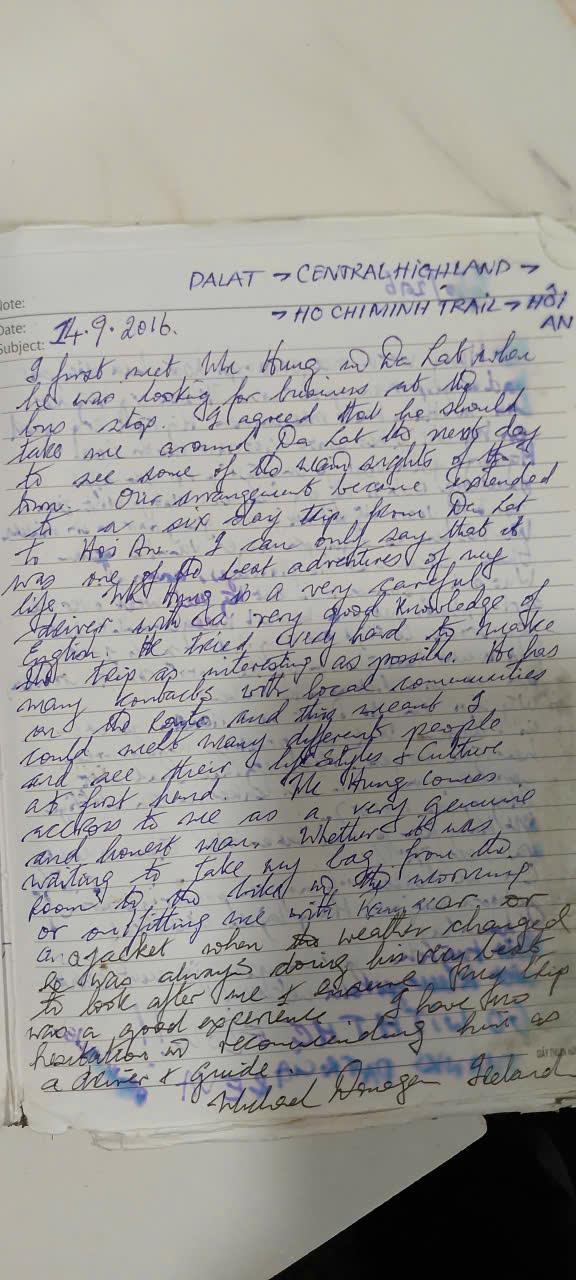 DALAT → CENTRAL HIGHLAND →
→ HO CHI MINH TRAIL → HỘI
AN
Note:
Date: 14.9.2016.
Subject:
I first met Mr. Hung in Da Lat when
he was looking for business at the
bus stop. I agreed that he should
take me around Da Lat the next day
to see some of the main sights of the
town. Our arrangement became extended
to a six day trip from Da Lat
to Hoi An. I can only say that it
was one of the best adventures of my
life. Mr Hung is a very careful
driver with a very good knowledge of
English. He tried very hard to make
the trip as interesting as possible. He has
many contacts with local communities
on the Route and this meant I
could meet many different people
and see their life styles & Culture
at first hand. Mr Hung comes
accross to me as a very genuine
and honest man. Whether it was
waiting to take my bag from the
room to the bike in the morning
or outfitting me with rain gear or
a jacket when the weather changed
he was always doing his very best
to look after me & ensure my trip
was a good experience. I have no
hesitation in recommending him as
a driver & guide.
Michael Ireland